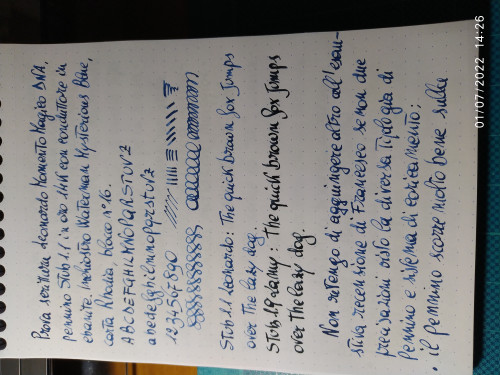 Prova scrittura Leonardo Momento Magico DNA,
pennino Stub 1.1 in oro 14k con conduttore in
ebanite. Inchiostro Waterman Mysterious Blue,
carta Rhodia bloco n° 16.
ABCDEFGHILMNOPQRSTUVZ
abcdefghilmnopqrstuvz
1234567890
Stub 1.1 Leonardo: The quick brown fox jumps
over The lazy dog.
Stub 1.9 Lamy: The quick brown fox jumps
over The lazy dog.
Non ritengo di aggiungere altro all'esau-
stiva recensione di Francesco se non due
precisazioni visto la diversa tipologia di
pennino e sistema di caricamento:
• il pennino scorre molto bene sulla
01/07/2022 14:26